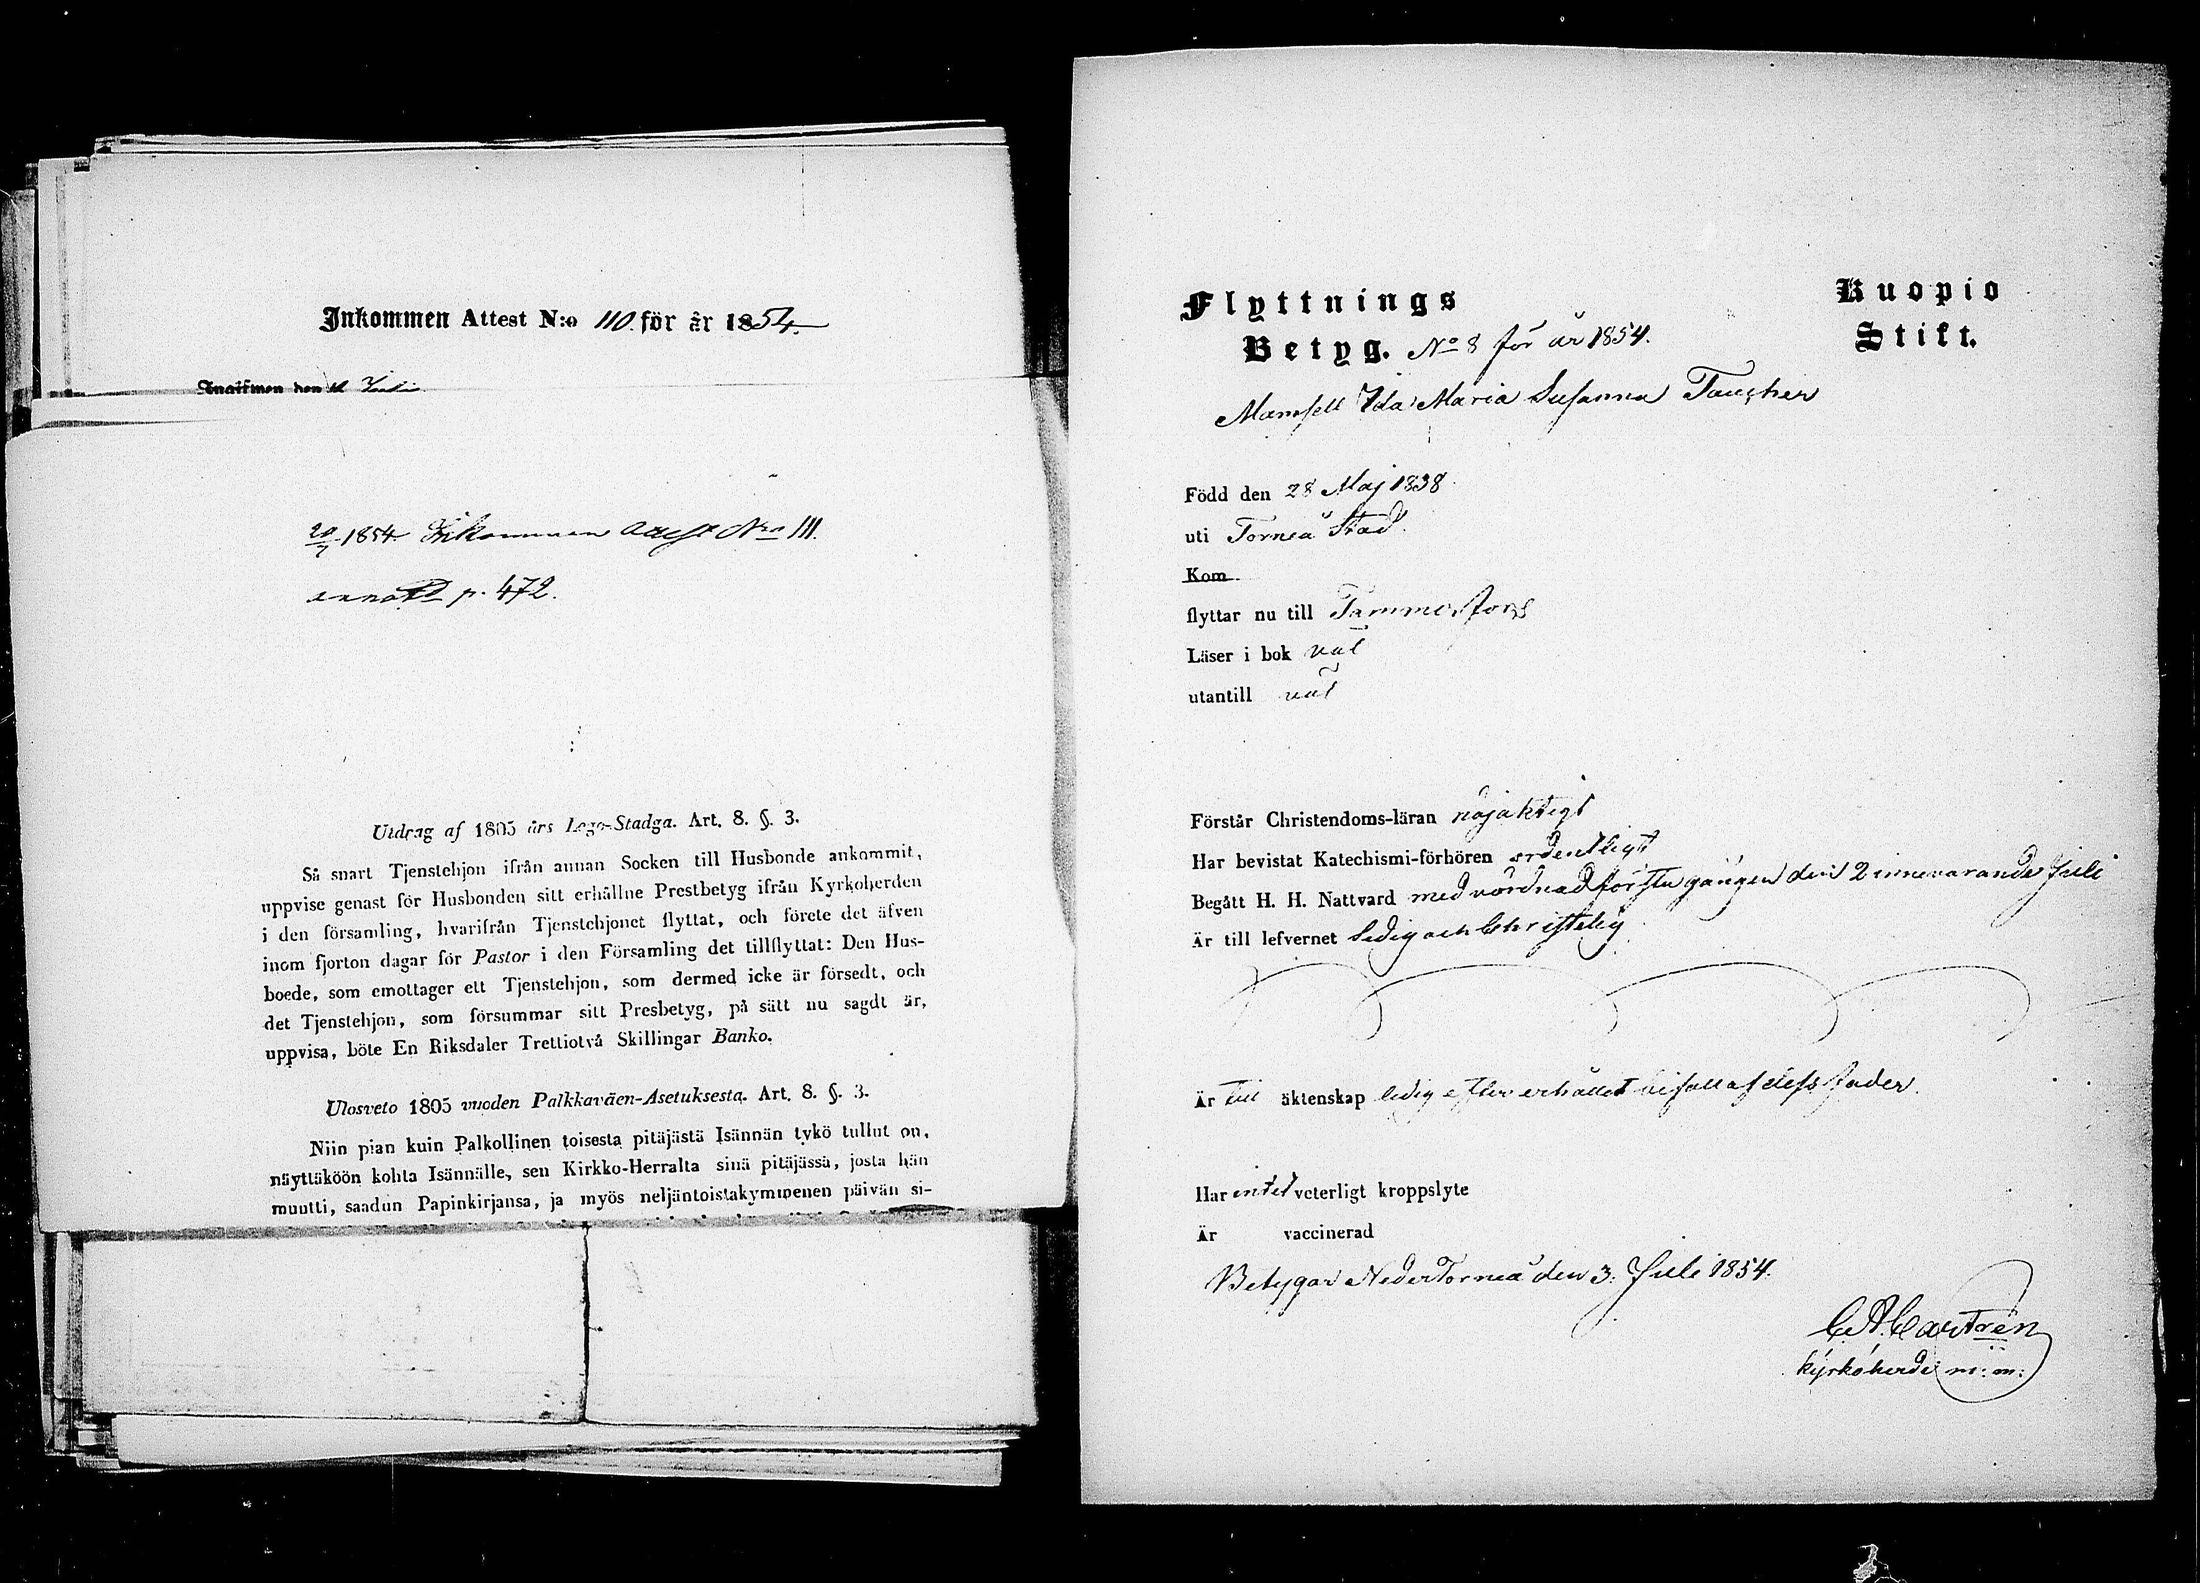 Inkommen Attest N:o 110. för år 1854.
Ingifwen den
20/7 1854. Inkommen attest Nro 111.
annotd p. 472.
Utdrag af 1805 års Lego-Stadga. Art. 8. §. 3.
Så snart Tjenstehjon ifrån annan Socken till Husbonde ankommit,
uppvise genast för Husbonden sitt erhållne Prestbetyg ifrån Kyrkoherden
i den församling, hvarifrån Tjenstehjonet flyttat, och förete det äfven
inom fjorton dagar för Pastor i den Församling det tillflyttat: Den Hus-
boede, som emottager ett Tjenstehjon, som dermed icke är försedt, och
det Tjenstehjon, som försummar sitt Presbetyg, på sätt nu sagdt är,
uppvisa, böte En Riksdaler Trettiotvå Skillingar Banko.
Ulosveto 1805 vuoden Palkkaväen-Asetuksesta. Art. 8. §. 3.
Niin pian kuin Palkollinen toisesta pitäjästä Isännän tykö tullut on,
näyttäköön kohta Isännälle, sen Kirkko-Herralta sinä pitäjässä, josta hän
muutti, saadun Papinkirjansa, ja myös neljäntoistakymmenen päivän si-
Flyttnings
Betyg. No 8 för år 1854.
Kuopio
Stift.
Mamsell Ida Maria Susanna Taucher
Född den 28 Maj 1838
uti Torneå Stad.
Kom
flyttar nu till Tammerfors
Läser i bok väl
utantill väl
Förstår Christendoms-läran nöjaktigt
Har bevistat Katechismi-förhören ordentligt
Begått H. H. Nattvard med vördnad första gången den 2 innevarande Juli
Är till lefvernet Sedig och Christelig
Är till äktenskap ledig efter erhållet bifall af dess fader.
Har intet veterligt kroppslyte
Är vaccinerad
Betygar NederTorneå den 3. Juli 1854.
C. A. Castrén
kyrkoherde m: m: